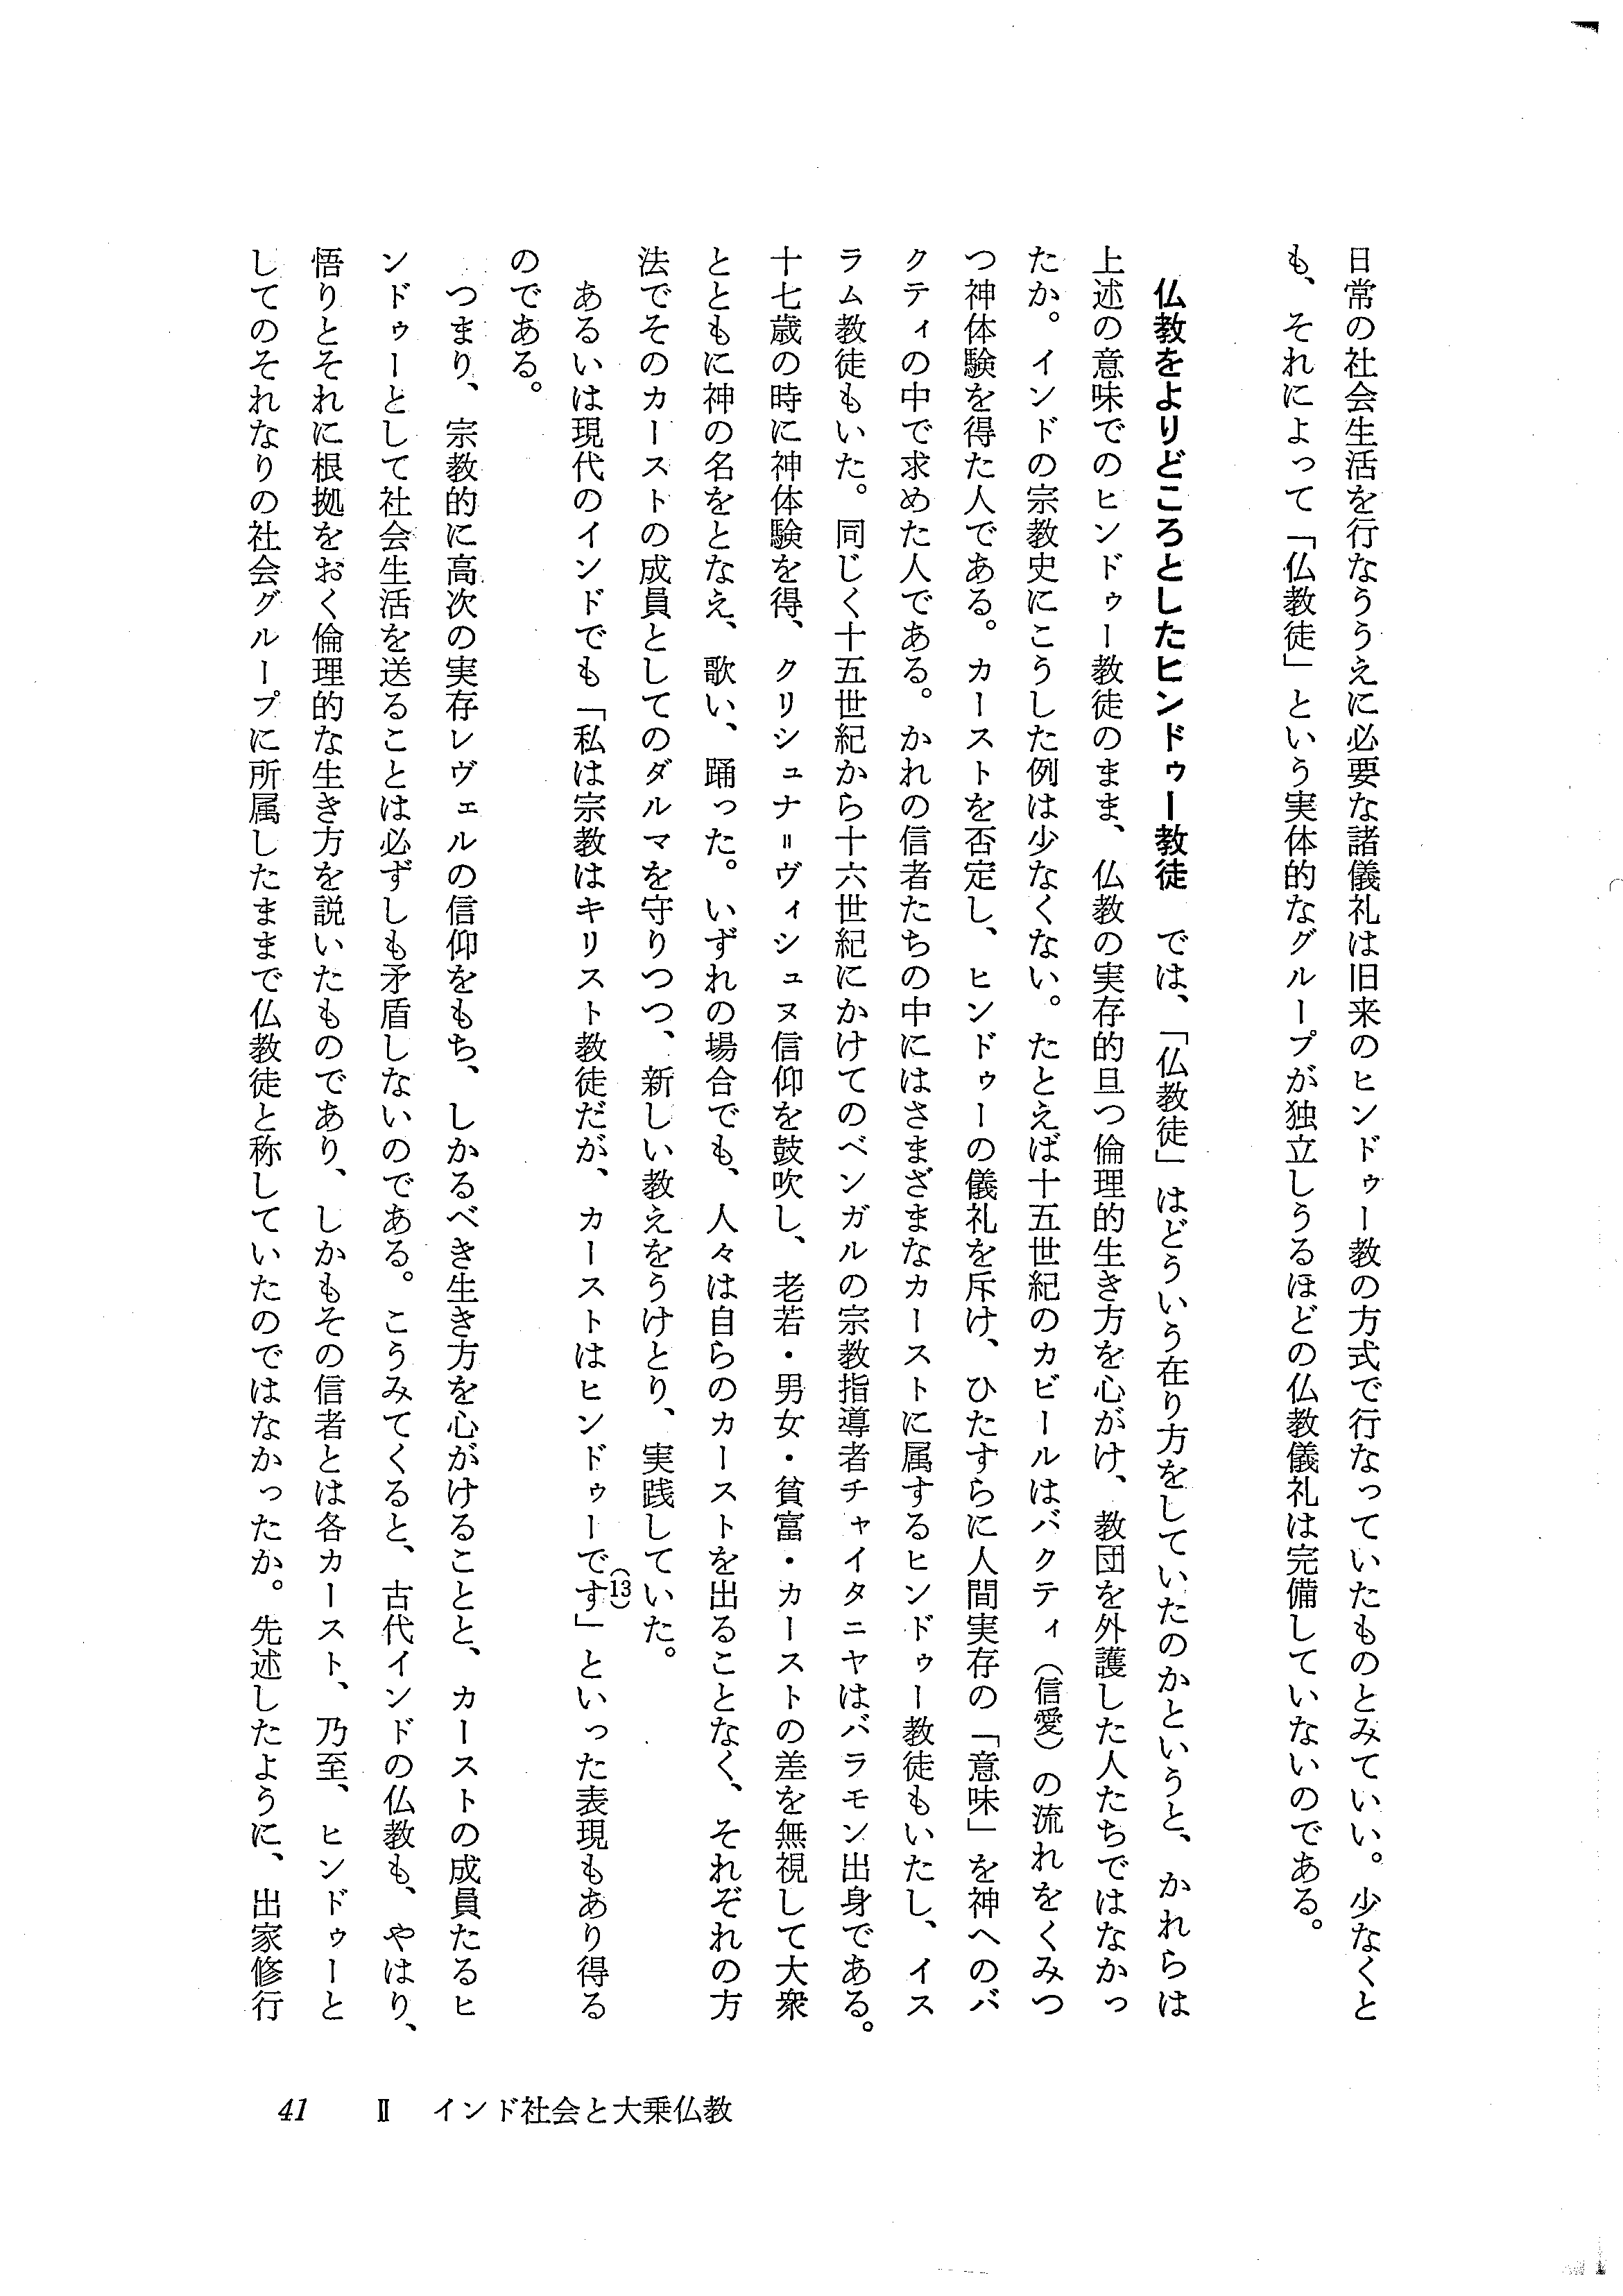 日常の社会生活を行なううえに必要な諸儀礼は旧来のヒンドゥー教の方式で行なっていたものとみていい。少なくと
も、それによって「仏教徒」という実体的なグループが独立しうるほどの仏教儀礼は完備していないのである。
仏教をよりどころとしたヒンドゥー教徒　では、「仏教徒」はどういう在り方をしていたのかというと、かれらは
上述の意味でのヒンドゥー教徒のまま、仏教の実存的且つ倫理的生き方を心がけ、教団を外護した人たちではなかっ
たか。インドの宗教史にこうした例は少なくない。たとえば十五世紀のカビールはバクティ（信愛）の流れをくみつ
つ神体験を得た人である。カーストを否定し、ヒンドゥーの儀礼を斥け、ひたすらに人間実存の「意味」を神へのバ
クティの中で求めた人である。かれの信者たちの中にはさまざまなカーストに属するヒンドゥー教徒もいたし、イス
ラム教徒もいた。同じく十五世紀から十六世紀にかけてのベンガルの宗教指導者チャイタニヤはバラモン出身である。
十七歳の時に神体験を得、クリシュナ＝ヴィシュヌ信仰を鼓吹し、老若・男女・貧富・カーストの差を無視して大衆
とともに神の名をとなえ、歌い、踊った。いずれの場合でも、人々は自らのカーストを出ることなく、それぞれの方
法でそのカーストの成員としてのダルマを守りつつ、新しい教えをうけとり、実践していた。
あるいは現代のインドでも「私は宗教はキリスト教徒だが、カーストはヒンドゥーです」(13)といった表現もあり得る
のである。
つまり、宗教的に高次の実存レヴェルの信仰をもち、しかるべき生き方を心がけることと、カーストの成員たるヒ
ンドゥーとして社会生活を送ることは必ずしも矛盾しないのである。こうみてくると、古代インドの仏教も、やはり、
悟りとそれに根拠をおく倫理的な生き方を説いたものであり、しかもその信者とは各カースト、乃至、ヒンドゥーと
してのそれなりの社会グループに所属したままで仏教徒と称していたのではなかったか。先述したように、出家修行
41　Ⅱ　インド社会と大乗仏教